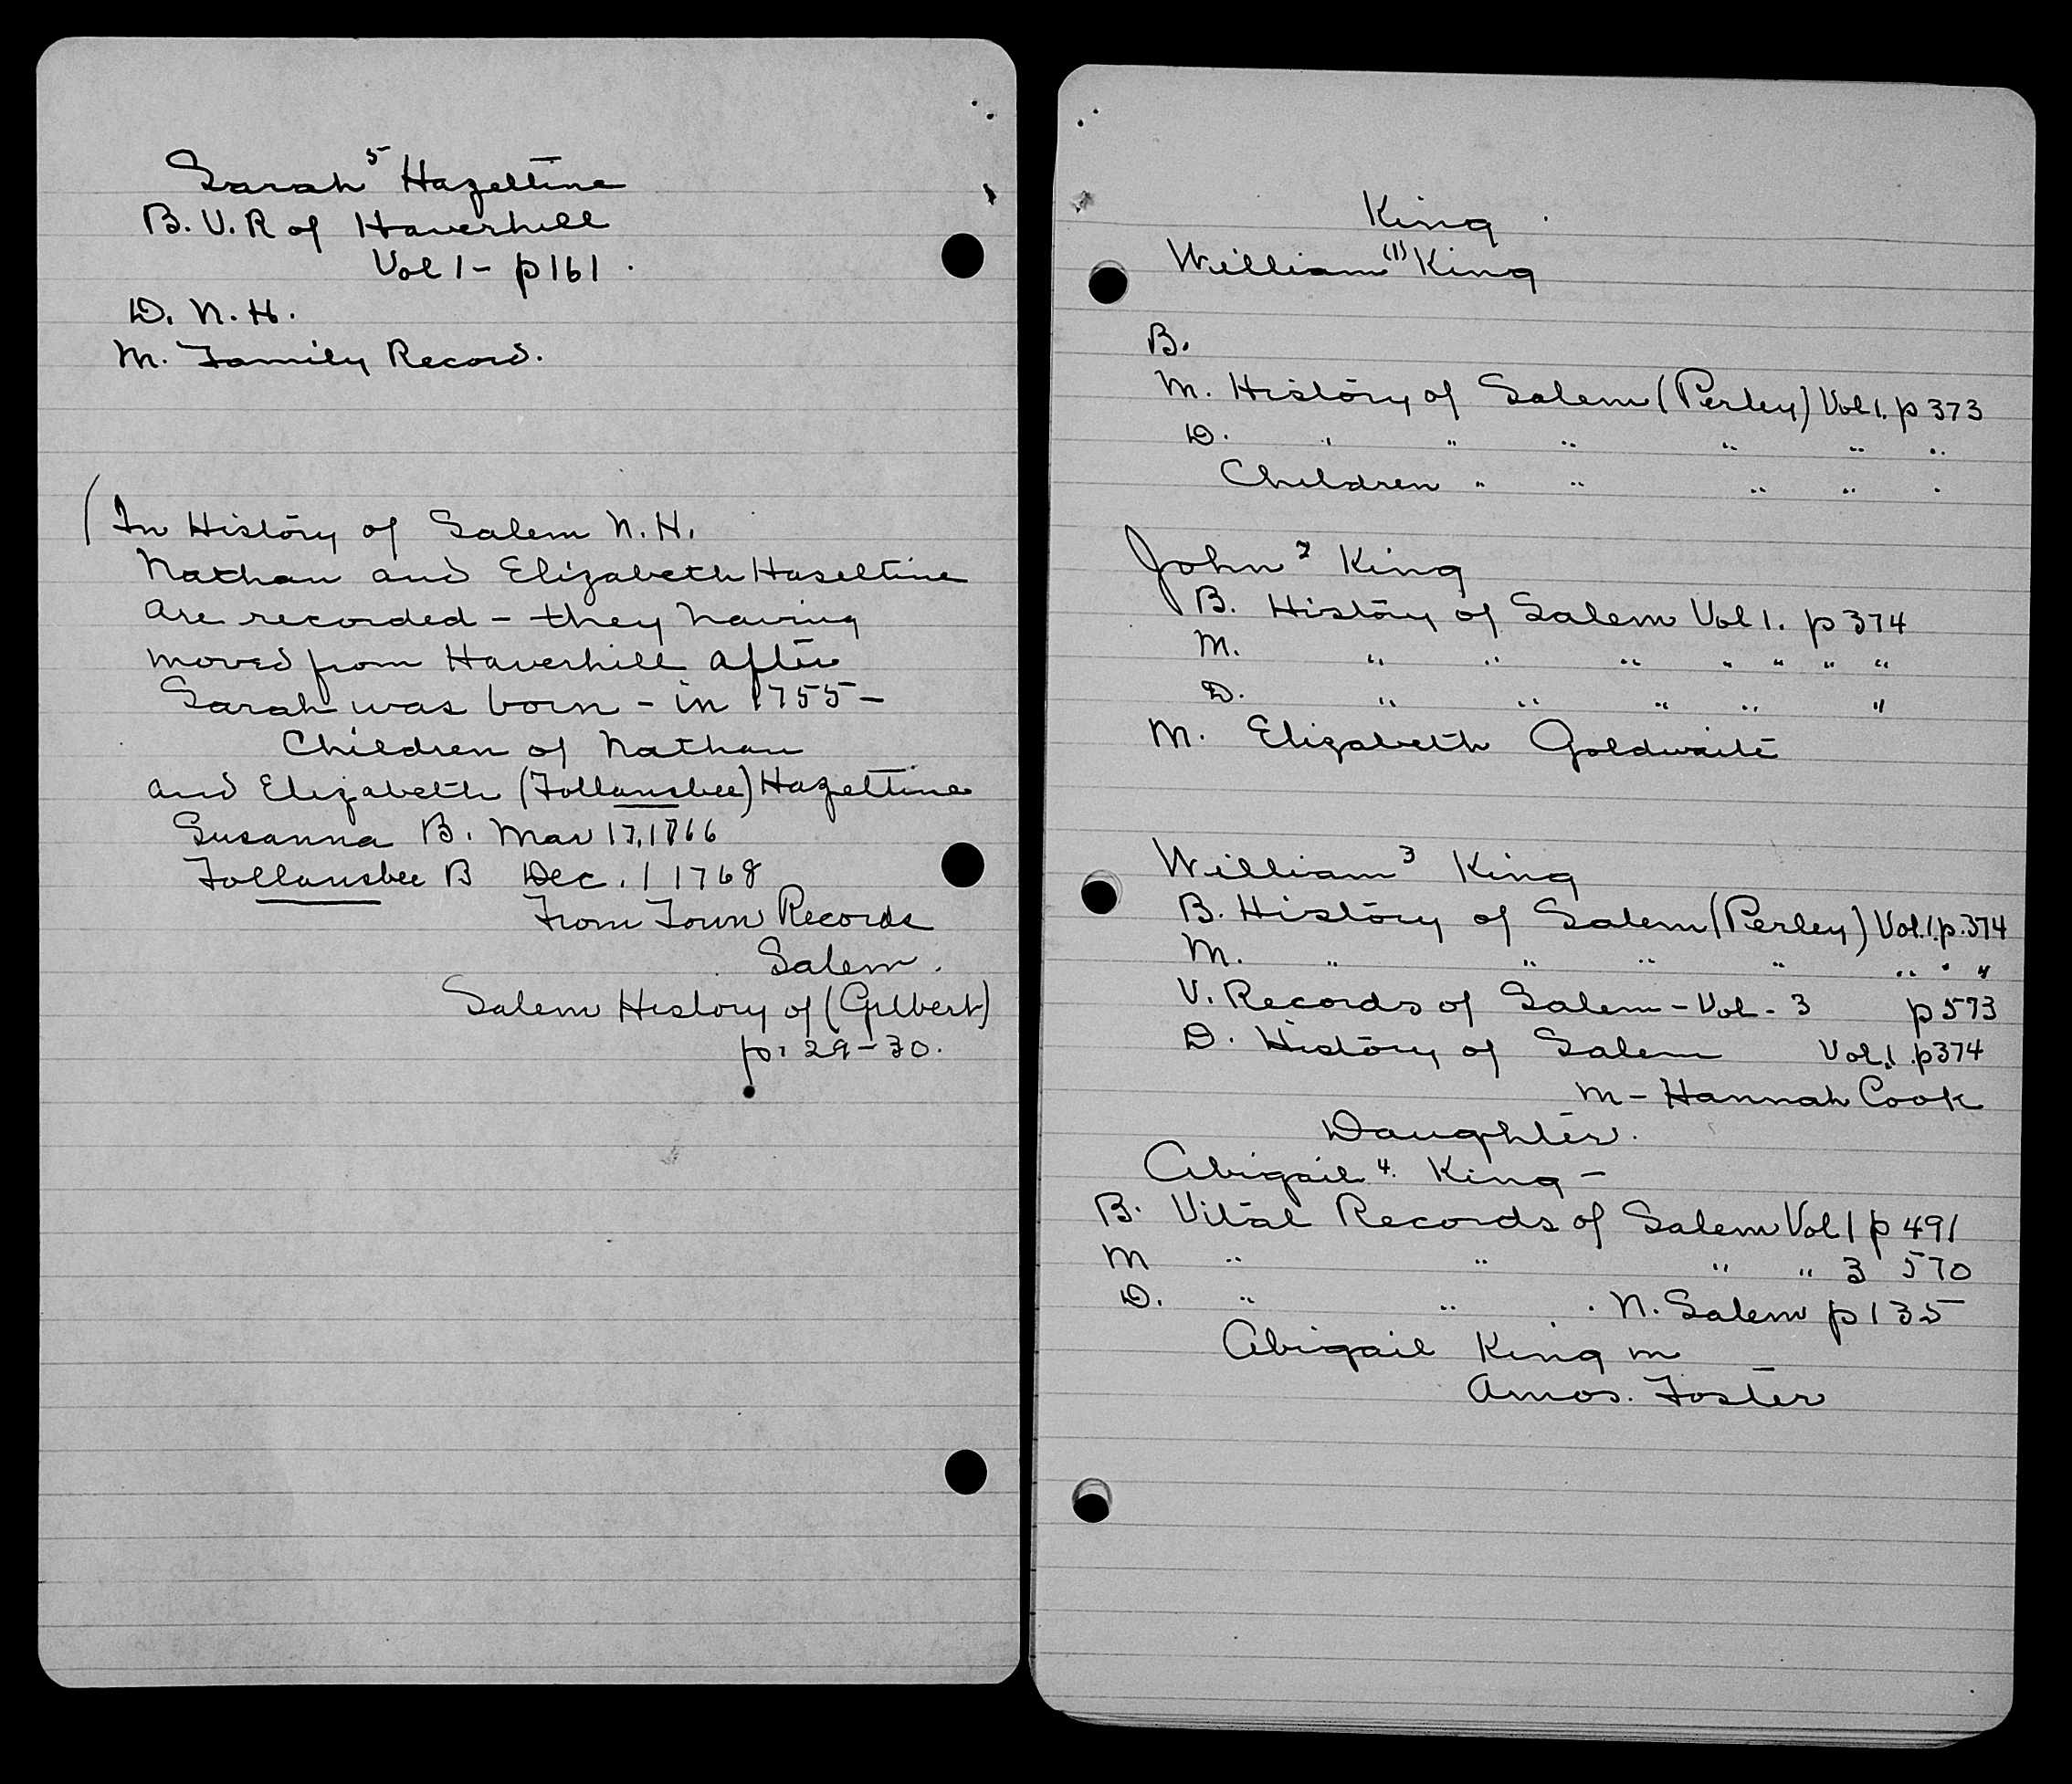 Sarah⁵ Hazeltine
B. V. R of Haverhill
Vol 1 - p 161.
D. N. H.
M. Family Record.
(In History of Salem N. H.
Nathan and Elizabeth Haseltine
are recorded - they having
moved from Haverhill after
Sarah was born - in 1755 -
Children of Nathan
and Elizabeth (Follansbee) Hazeltine
Susanna B. Mar 17, 1766
Follansbee B Dec. 1 1768
From Town Records
Salem.
Salem History of (Gilbert)
p. 29-30.
King
William (1) King
B.
M. History of Salem (Perley) Vol 1. p 373
D. " " " " " "
Children " " " " "
John² King
B. History of Salem Vol 1. p 374
M. " " " " " " "
D. " " " " "
M. Elizabeth Goldwaite
William³ King
B. History of Salem (Perley) Vol. 1. p. 374
M. " " " " " " "
V. Records of Salem - Vol - 3 p 573
D. History of Salem Vol. 1 p 374
M - Hannah Cook
Daughter.
Abigail⁴ King -
B. Vital Records of Salem Vol 1 p 491
M " " " " 3 570
D. " " . N. Salem p 135
Abigail King m
Amos. Foster